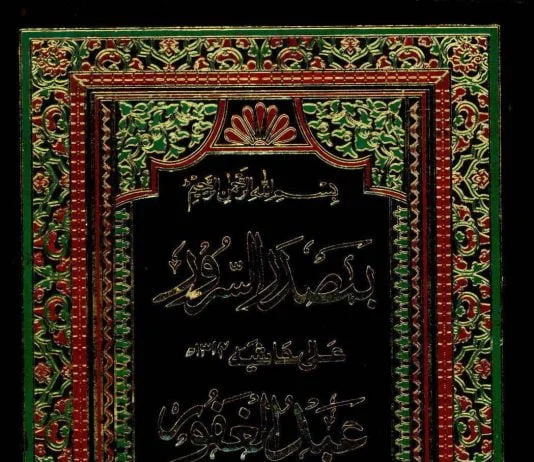 بسم الله الرحمن الرحيم
السرور
على حاشية
عبد الغفور